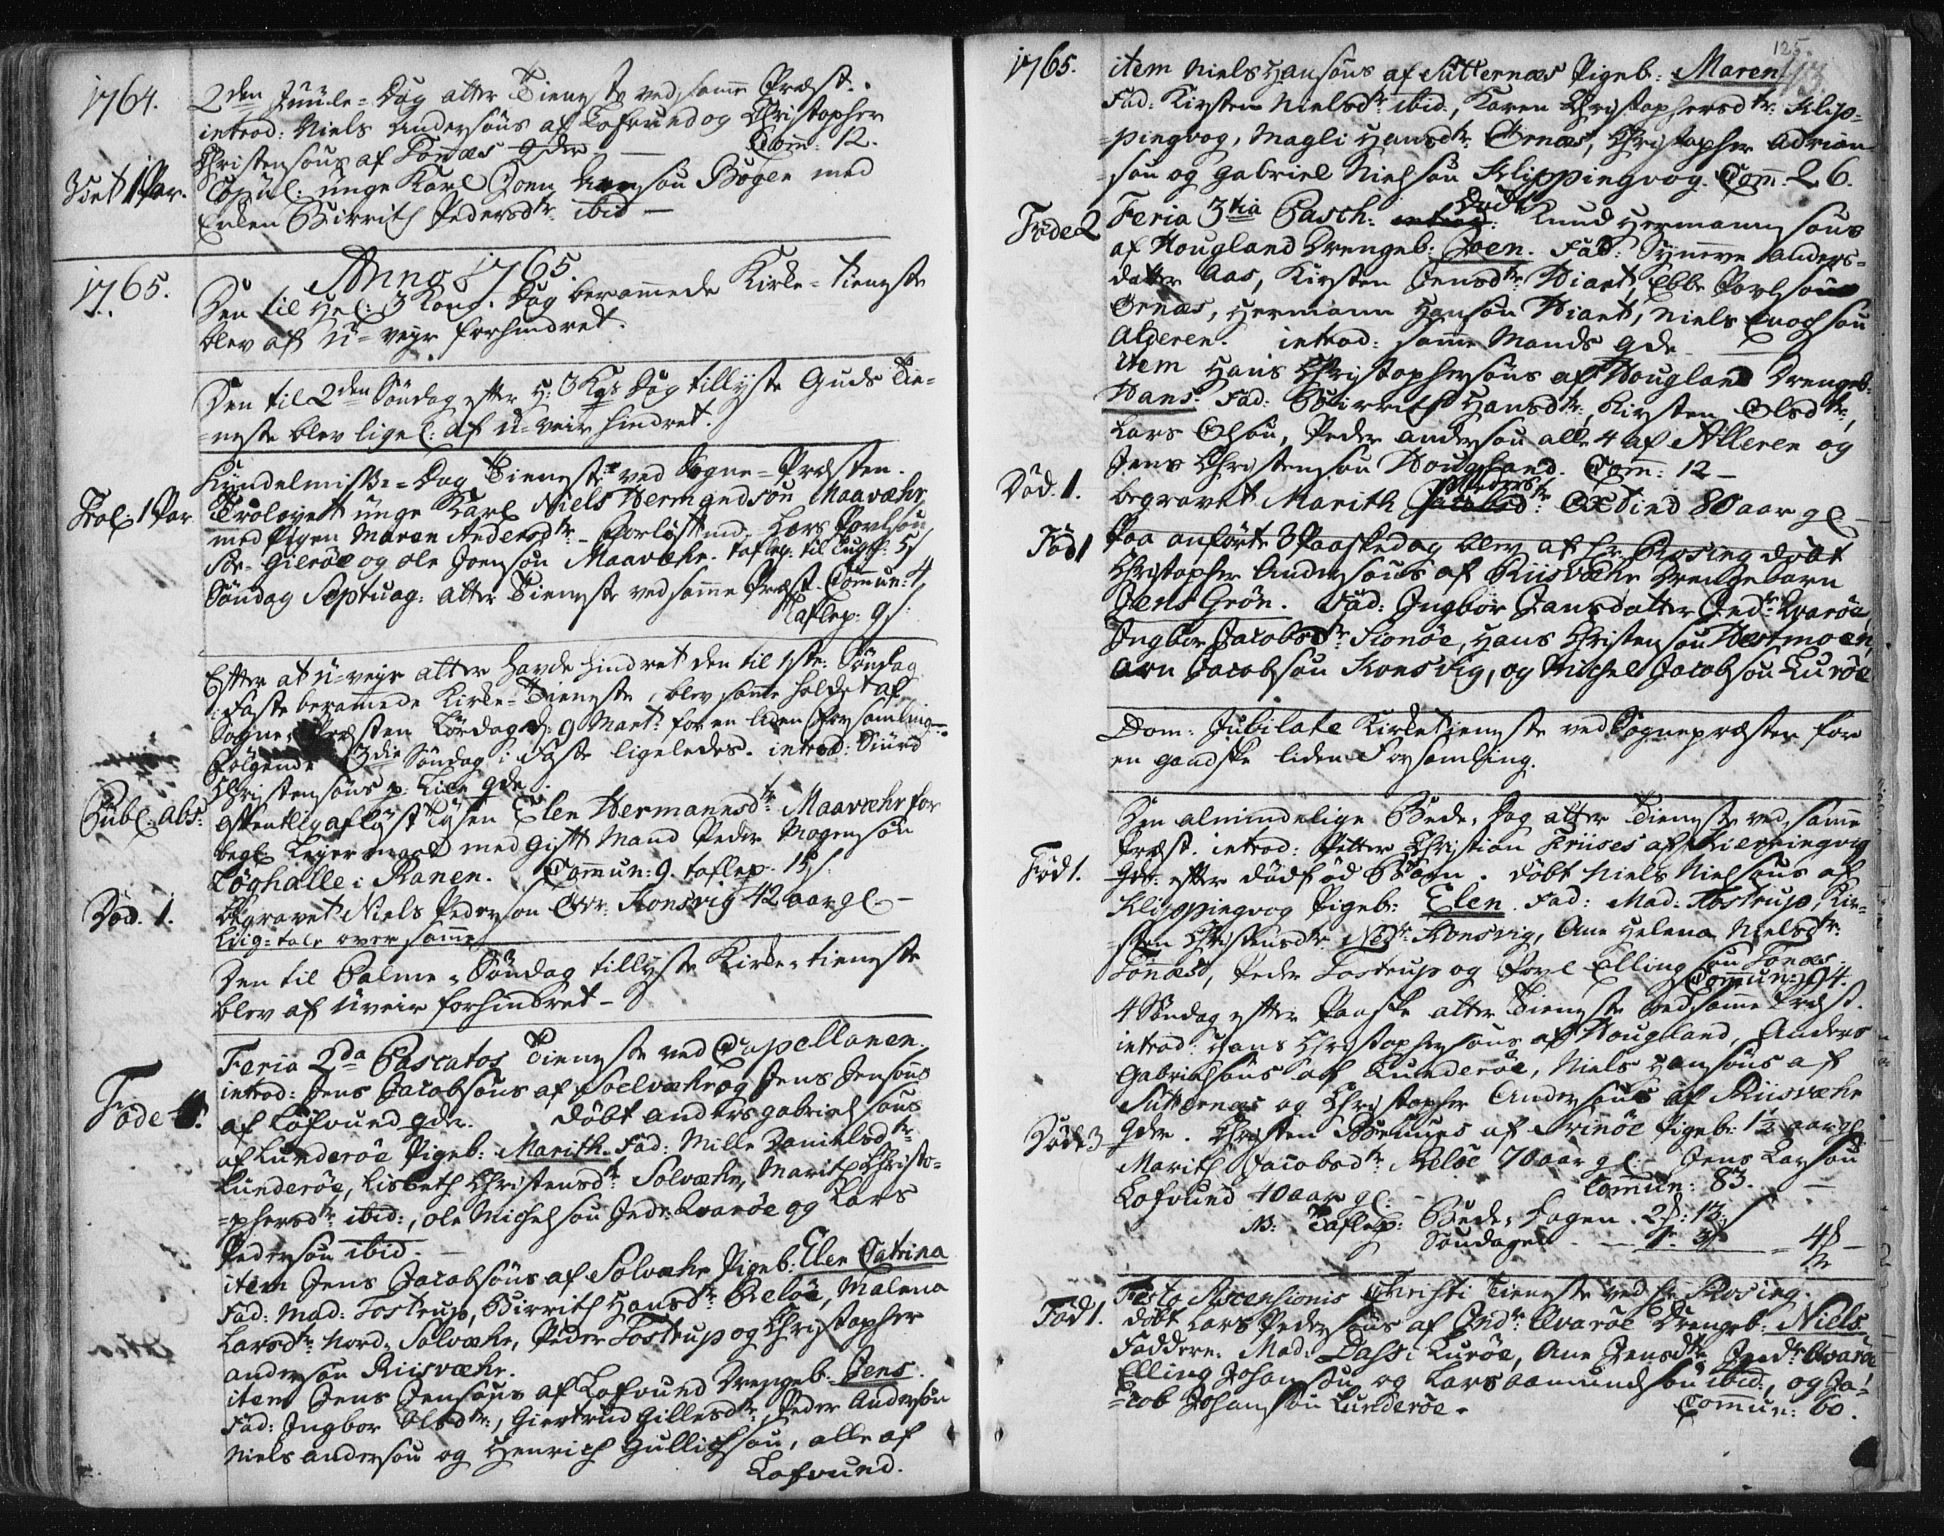 1764.
2den Juule-Dag atter Tieneste ved samme Præst.
introd: Niels Andersöns af Lofvund og Christopher
Christensöns af Tonæs qder — Com: 12.
Viet 1 Par.
Copul: unge Karl Joen Arnsön Bogen med
Enken Birrith Pedersdtr: ibid —
Anno 1765.
1765.
Den til Hel: 3 Kong: Dag berammede Kirke-tieneste
blev af U-veyr forhindret.
Den til 2den Söndag efter H: 3 Kgs Dag tillyste Guds Tie-
neste blev ligel: af U-veir hindret.
Kyndelmisse-Dag Tieneste ved Sogne-Præsten.
Trol: 1 Par
Trolovet unge Karl Niels Hermandsön Maaværr
med Pigen Maren Andersdtr: Forlöftmd: Lars Povelsön
Sör-Gieröe og Ole Joensön Maavæhr. taflep. til Tugth: 5
Söndag Septuag: atter Tieneste ved samme Præst. Commun: 4
Taflep: 9
Efter at U-veyr atter havde hindret den til 1ste Söndag
i Faste berammede Kirke-Tieneste, blev samme holdet af
Sogne-Præsten Lördag d: 9 Marti for en liden Forsamling.
Fölgende 3die Söndag i Faste ligeledes. introd: Siurd
Christensöns qde.
Publ: abs:
Offentlig aflöst Tösen Elen Hermannsdtr Maavæhr for
begt Leyermaal med Gift Mand Peder Mogensön
Löghalle i Ranen. Commun: 9. taflep. 15
Död. 1.
Begravet Niels Pedersön Konsvig 42 aar gl. —
Liig-tale over samme
Den til Palme-Söndag tillyste Kirke-tieneste
blev af Uveir forhindret —
Feria 2da Pascatos Tieneste ved Capellanen.
introd: Jens Jacobsöns af Soelvæhr og Jens Jensöns
Föde 4.
af Lofvund qder. Döbt Anders Gabrielsöns
af Lunderöe Pigeb: Marith. Fad: Mille Danielsdtr
Lunderöe, Lisbeth Christensdtr Solvæhr, Marith Christo-
phersdtr ibid:, Ole Michelsön Indr: Qvaröe og Lars
Pedersön ibid. —
item Jens Jacobsöns af Solvæhr Pigeb: Elen Catrina
Fad: Mad: Tostrup, Birrith Hansdtr Reløe, Malena
Larsdtr Nord-Solvæhr, Peder Tostrup og Christopher
Andersön Riisvæhr.
item Jens Jensöns af Lofvund Drengeb: Jens.
Fad: Ingbor Olsdtr:, Giertrud Gillesdtr: Peder Andersön
Niels Andersön og Henrich Gullichsön, alle af
Lofvund.
125.
1765.
item Niels Hansöns af Sutternæs Pigeb: Maren
Fad: Kirsten Nielsdtr ibid:, Karen Christophersdtr: Klip-
pingvog, Magli Hansdtr: Ornæs, Christopher Adrian-
sön og Gabriel Nielsön Klippingvog. Com: 26.
Föde 2
Feria 3tia Pasch: introd: Döbt Knud Hermannsöns
af Hougland Drengeb: Joen. Fad: Synneve Anders-
datter Aas, Kirsten Jensdtr: Hiart, Ebbe Povelsön
Ornæs, Hermann Hansön Hiart, Niels Enochsön
Alderen. introd: samme Mands qde
item Hans Christophersöns af Hougland Drengeb:
Hans. Fad: Birrith Hansdtr:, Kirsten Olsdtr:,
Lars Olsön, Peder Andersön alle 4 af Alleren og
Jens Christensön Hougland. Com: 12 —
Död. 1.
begravet Marith Jacobsd Pedersdtr: Oxtind 80 aar gl —
Föd 1
Paa anförte 3 Paaskedag blev af Hr: Rosing döbt
Christopher Andersöns af Riisvæhr Drengebarn
Jens Grön. Fad: Ingbor Jansdatter Indr: Qvaröe,
Ingbor Jacobsdtr Sionöe, Hans Christensön Hestmoen,
Arn Jacobsön Konsvig, og Michel Jacobsön Luröe
Dom: Jubilate Kirketieneste ved Sognepræsten for
en gandske liden Forsamling.
Den almindelige Bede-Dag atter Tieneste ved samme
Præst. introd: Pitter Christian Friises af Kierringvig
Föd 1.
qde: efter dödföd Barn. döbt Niels Nielsöns af
Klippingvog Pigeb: Elen. Fad: Mad: Tostrup, Kir-
sten Christensdtr Nedr: Konsvig, Ane Helena Nielsdtr:
Tonæs, Peder Tostrup og Povel Ellingsön Tonæs.
Commun: 94.
4 Söndag efter Paaske atter Tieneste ved samme Præst.
introd: Hans Christophersöns af Hougland, Anders
Gabrielsöns af Lunderöe, Niels Hansöns af
Sutternæs og Christopher Andersöns af Riisvæhr
Död 3
qder. Christen Bennies af Svinöe Pigeb: 1½ aar gl
Marith Jacobsdtr: Reløe 70 aar gl — Jens Larsön
Lofvund 40 aar gl: — Commun: 83. —
N: Taflep: Bede-Dagen . 2
Söndagen
Föd 1.
Festo Ascensionis Christi Tieneste ved Hr Rosing.
döbt Lars Pedersöns af Indr: Qvaröe Drengeb: Niels.
Faddere: Mad: Dass i Luröe, Ane Jensdtr Indr: Qvaröe
Elling Johansön og Lars Aamundsön ibid:, og Ja-
cob Johansön Lunderöe. Commun: 60.